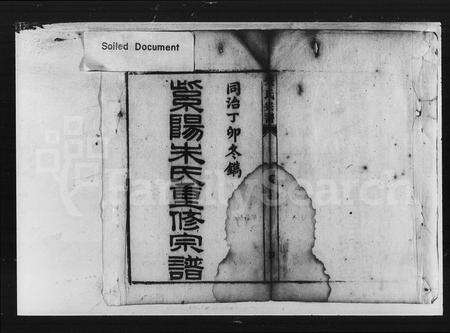 Soiled Document
同治丁卯冬鐫
紫陽朱氏重修宗譜
FamilySearch